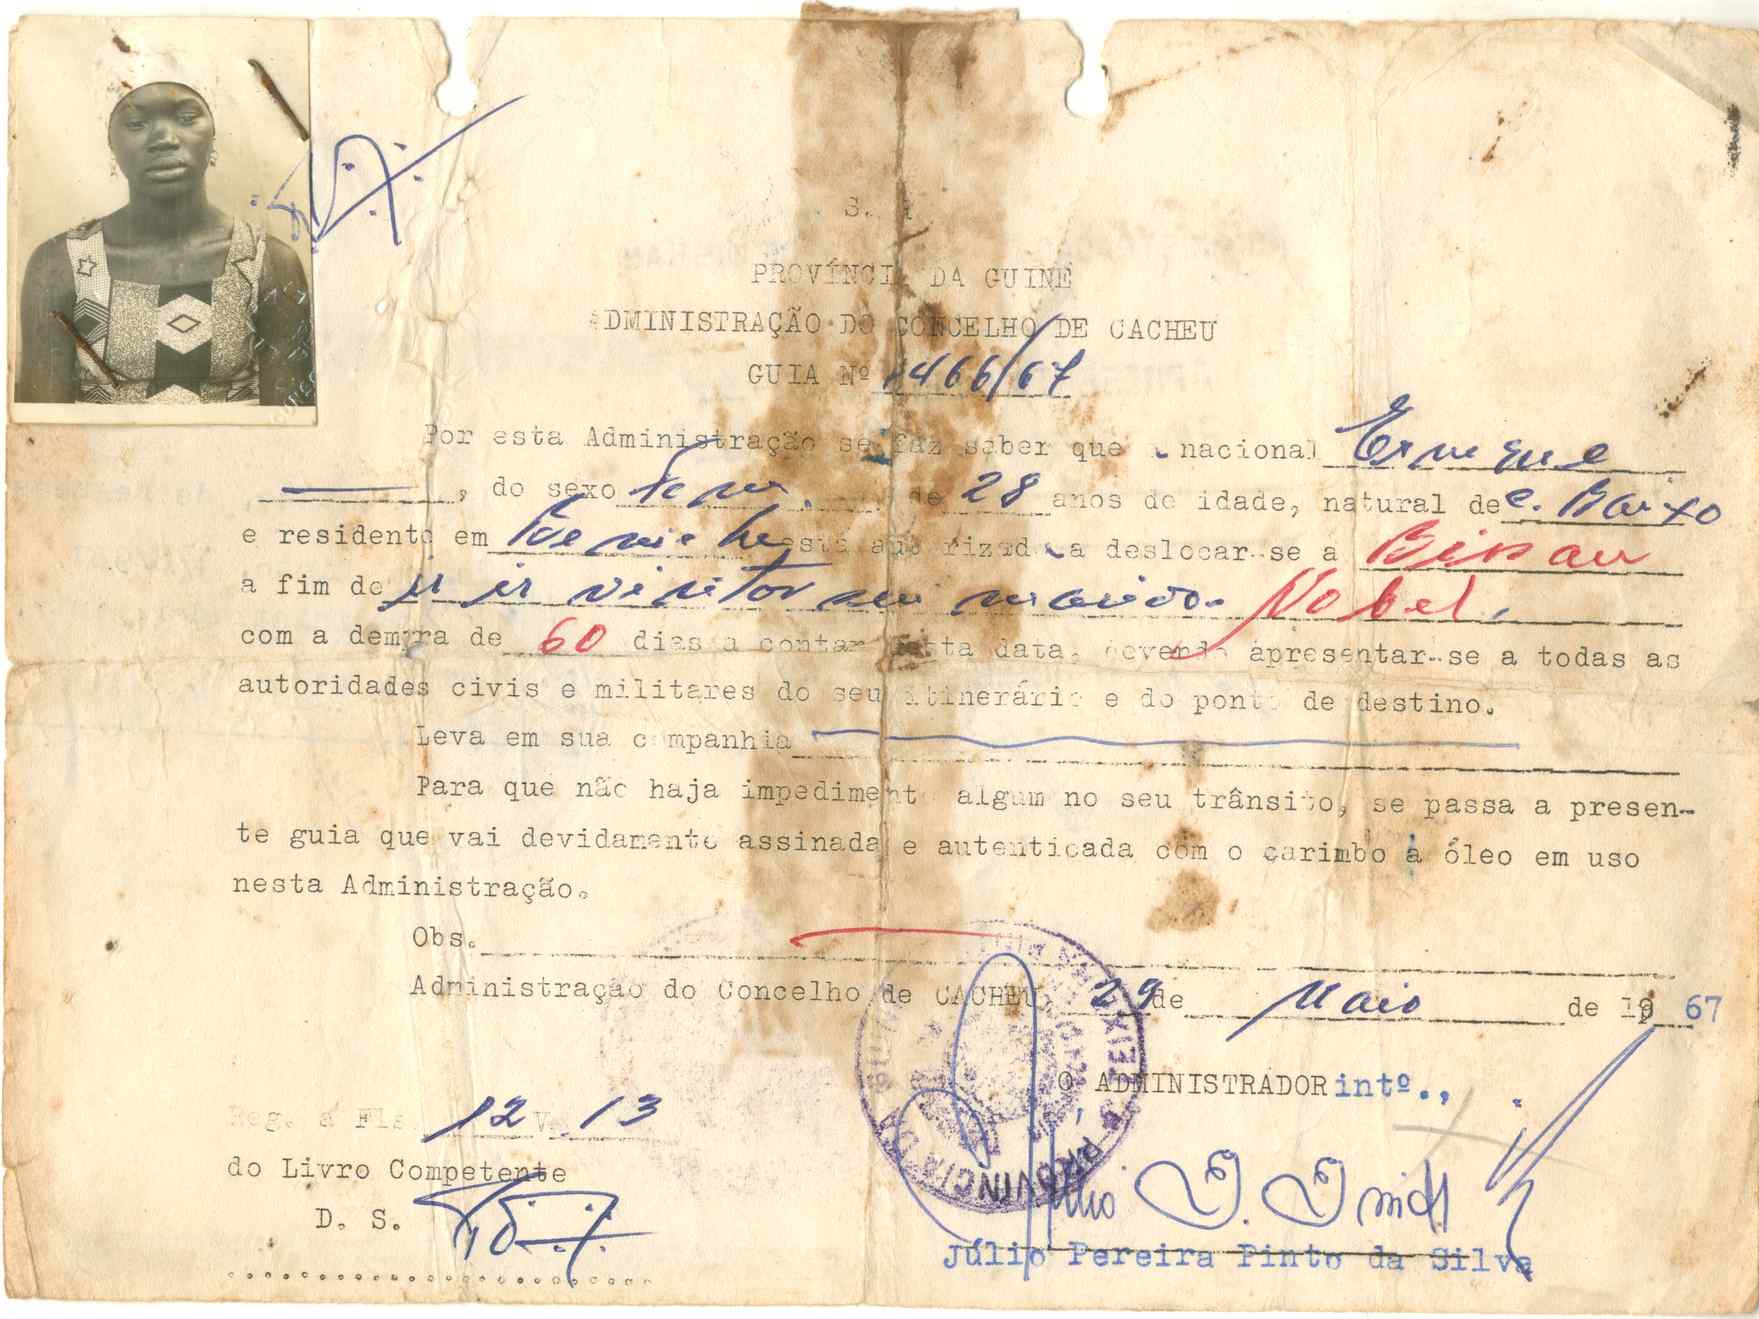 S. R
PROVÍNCIA DA GUINÉ
ADMINISTRAÇÃO DO CONCELHO DE CACHEU
GUIA Nº 1466/67
Por esta Administração se faz saber que a nacional
, do sexo Fem. de 28 anos de idade, natural de C. Baixo
e residente em está autorizada a deslocar-se a Bissau
a fim de ir visitar seu marido. Nobel,
com a demora de 60 dias a contar desta data, devendo apresentar-se a todas as
autoridades civis e militares do seu itinerário e do ponto de destino.
Leva em sua companhia
Para que não haja impedimento algum no seu trânsito, se passa a presen-
te guia que vai devidamente assinada e autenticada com o carimbo a óleo em uso
nesta Administração.
Obs.
Administração do Concelho de CACHEU, 29 de Maio de 1967
O ADMINISTRADOR intº.,
Reg. a Fls. 12 V. 13
do Livro Competente
D. S.
Júlio Pereira Pinto da Silva